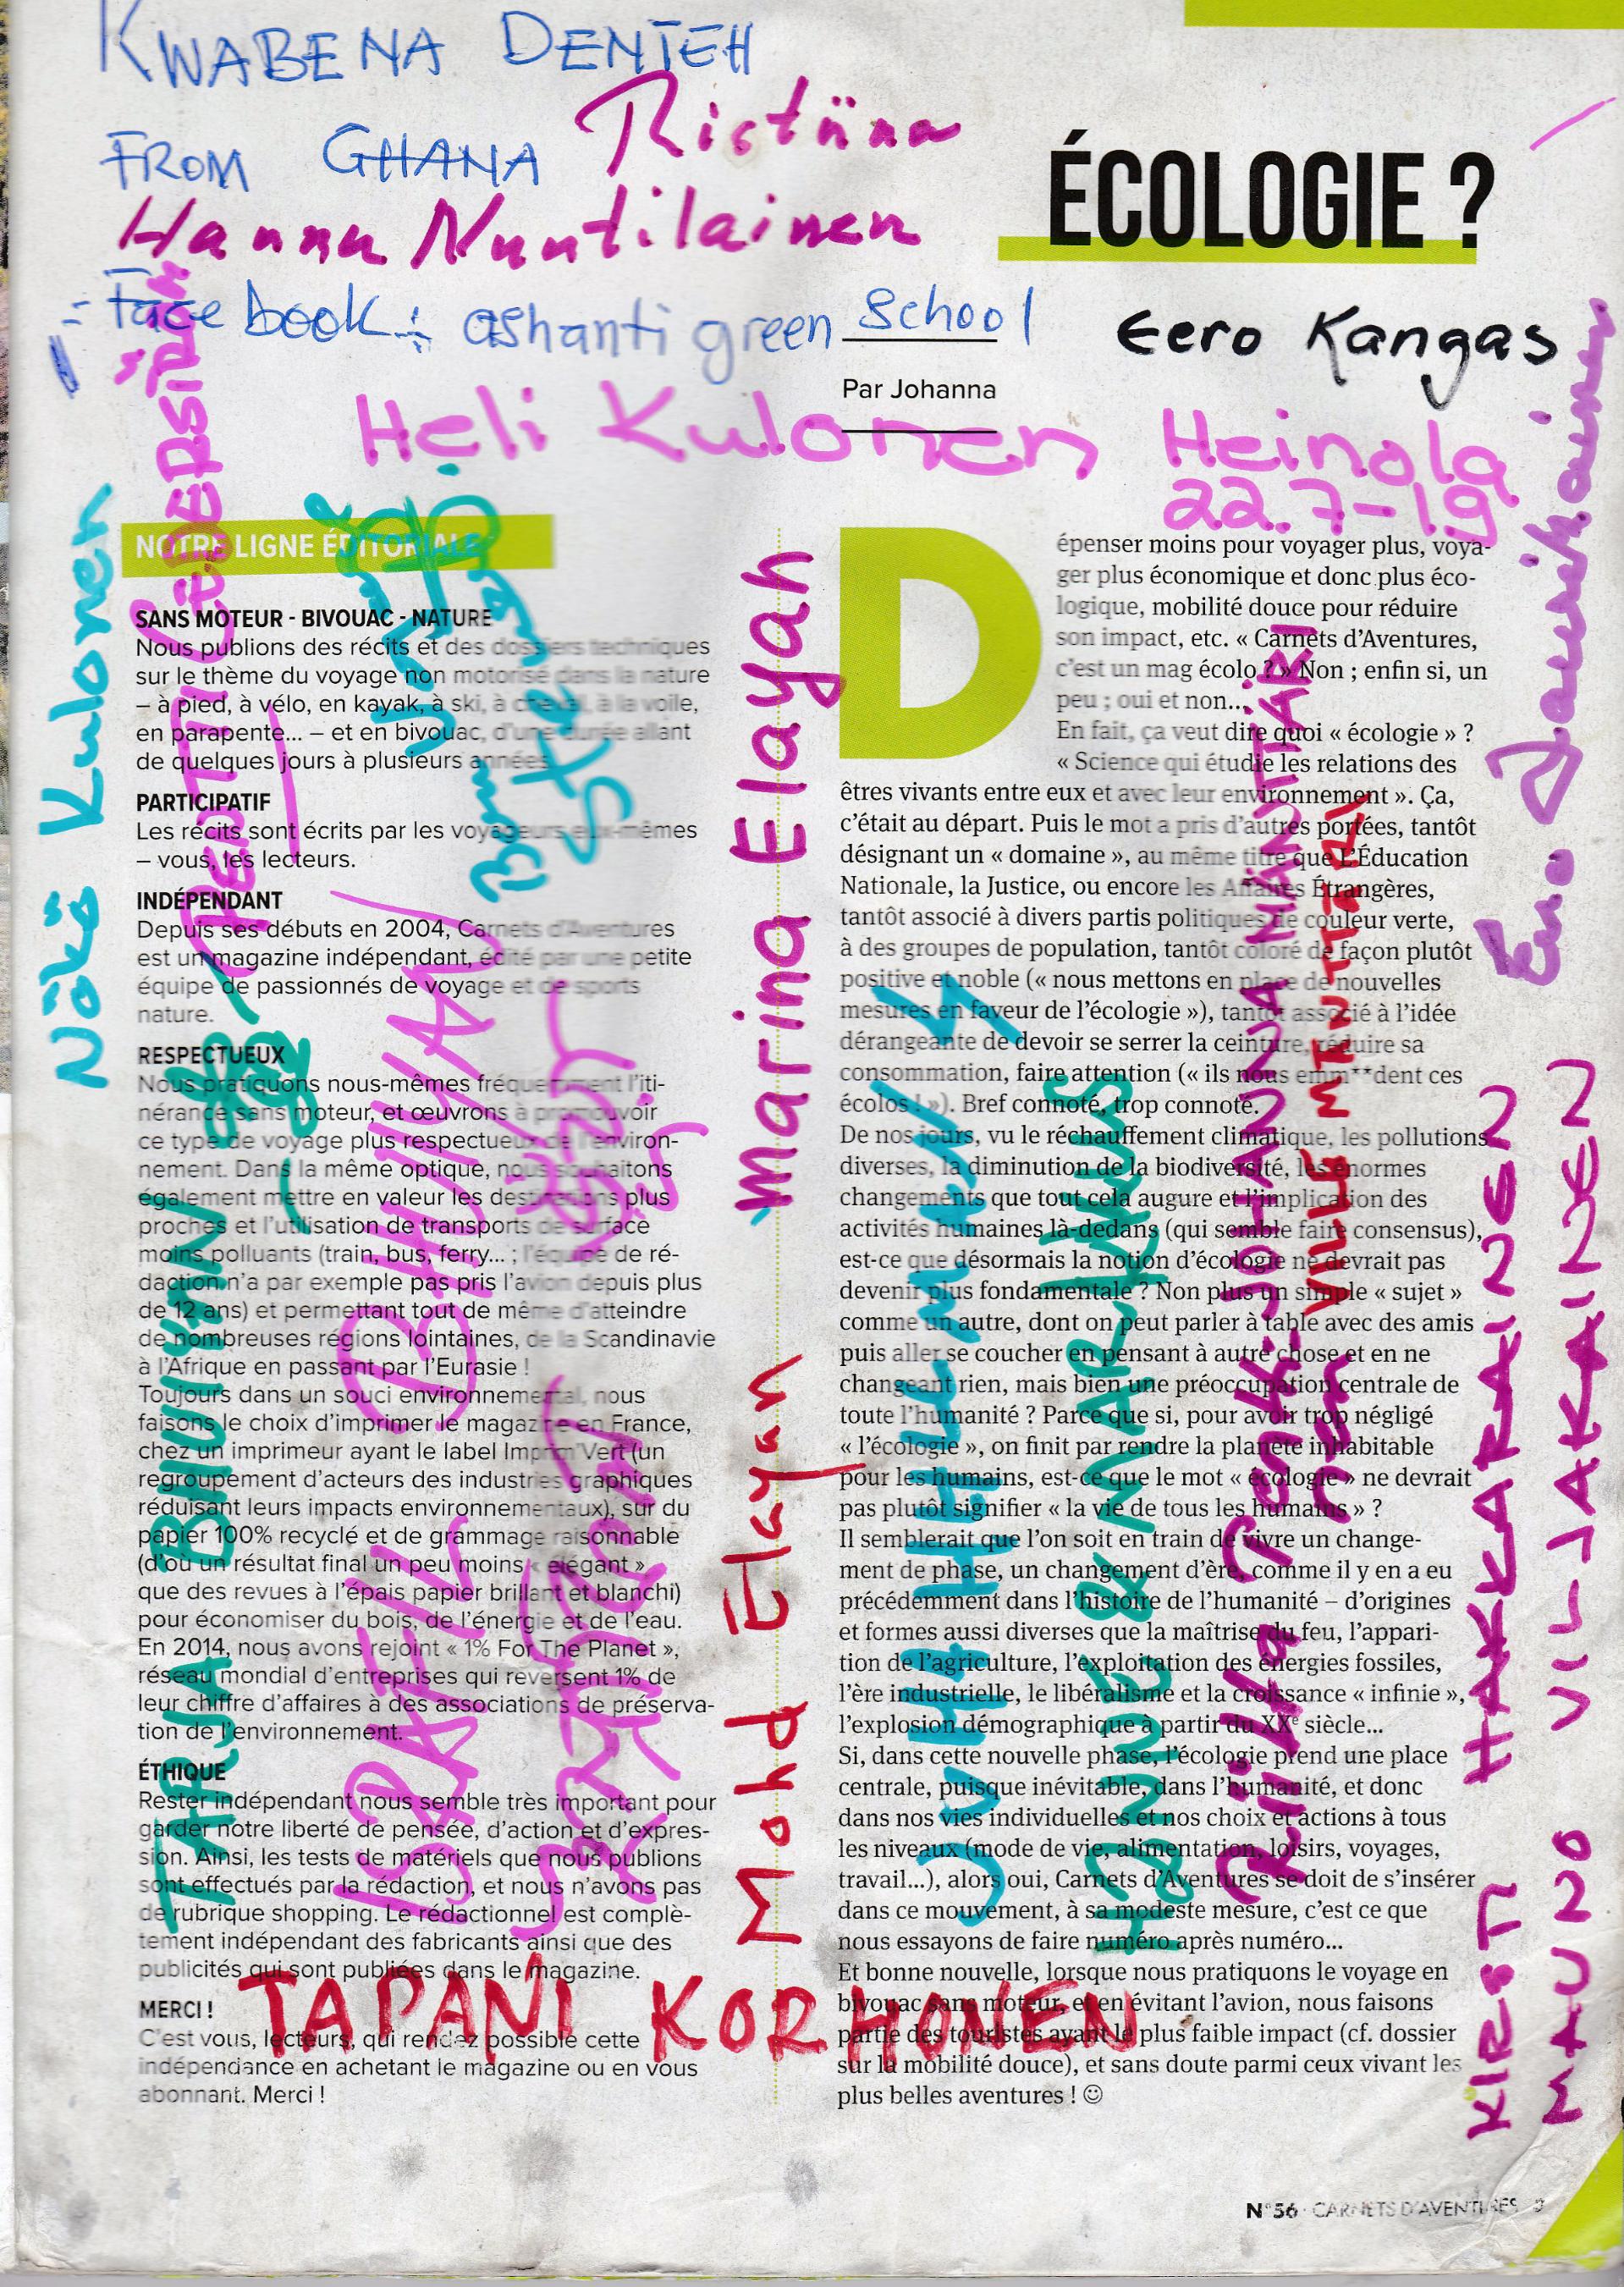 KWABENA DENTEH
FROM GHANA
Ristiina
Hannu Nuutilainen
Facebook: ashanti green school
ÉCOLOGIE ?
Eero Kangas
Par Johanna
Heli Kulonen Heinola
22.7-19
Niko Kulonen
NOTRE LIGNE ÉDITORIALE
SANS MOTEUR - BIVOUAC - NATURE
Nous publions des récits et des dossiers techniques
sur le thème du voyage non motorisé dans la nature
– à pied, à vélo, en kayak, à ski, à cheval, à la voile,
en parapente... – et en bivouac, d'une durée allant
de quelques jours à plusieurs années.
PARTICIPATIF
Les récits sont écrits par les voyageurs eux-mêmes
– vous, les lecteurs.
INDÉPENDANT
Depuis ses débuts en 2004, Carnets d'Aventures
est un magazine indépendant, édité par une petite
équipe de passionnés de voyage et de sports
nature.
RESPECTUEUX
Nous pratiquons nous-mêmes fréquemment l'iti-
nérance sans moteur, et œuvrons à promouvoir
ce type de voyage plus respectueux de l'environ-
nement. Dans la même optique, nous souhaitons
également mettre en valeur les destinations plus
proches et l'utilisation de transports de surface
moins polluants (train, bus, ferry... ; l'équipe de ré-
daction n'a par exemple pas pris l'avion depuis plus
de 12 ans) et permettant tout de même d'atteindre
de nombreuses régions lointaines, de la Scandinavie
à l'Afrique en passant par l'Eurasie !
Toujours dans un souci environnemental, nous
faisons le choix d'imprimer le magazine en France,
chez un imprimeur ayant le label Imprim'Vert (un
regroupement d'acteurs des industries graphiques
réduisant leurs impacts environnementaux), sur du
papier 100% recyclé et de grammage raisonnable
(d'où un résultat final un peu moins « élégant »
que des revues à l'épais papier brillant et blanchi)
pour économiser du bois, de l'énergie et de l'eau.
En 2014, nous avons rejoint « 1% For The Planet »,
réseau mondial d'entreprises qui reversent 1% de
leur chiffre d'affaires à des associations de préserva-
tion de l'environnement.
ÉTHIQUE
Rester indépendant nous semble très important pour
garder notre liberté de pensée, d'action et d'expres-
sion. Ainsi, les tests de matériels que nous publions
sont effectués par la rédaction, et nous n'avons pas
de rubrique shopping. Le rédactionnel est complè-
tement indépendant des fabricants ainsi que des
publicités qui sont publiées dans le magazine.
MERCI !
C'est vous, lecteurs, qui rendez possible cette
indépendance en achetant le magazine ou en vous
abonnant. Merci !
TAPANI KORHONEN
Marina Elayan
Mohd Elayan
Dépenser moins pour voyager plus, voya-
ger plus économique et donc plus éco-
logique, mobilité douce pour réduire
son impact, etc. « Carnets d'Aventures,
c'est un mag écolo ? » Non ; enfin si, un
peu ; oui et non...
En fait, ça veut dire quoi « écologie » ?
« Science qui étudie les relations des
êtres vivants entre eux et avec leur environnement ». Ça,
c'était au départ. Puis le mot a pris d'autres portées, tantôt
désignant un « domaine », au même titre que L'Éducation
Nationale, la Justice, ou encore les Affaires Étrangères,
tantôt associé à divers partis politiques de couleur verte,
à des groupes de population, tantôt coloré de façon plutôt
positive et noble (« nous mettons en place de nouvelles
mesures en faveur de l'écologie »), tantôt associé à l'idée
dérangeante de devoir se serrer la ceinture, réduire sa
consommation, faire attention (« ils nous emm**dent ces
écolos ! »). Bref connoté, trop connoté.
De nos jours, vu le réchauffement climatique, les pollutions
diverses, la diminution de la biodiversité, les énormes
changements que tout cela augure et l'implication des
activités humaines là-dedans (qui semble faire consensus),
est-ce que désormais la notion d'écologie ne devrait pas
devenir plus fondamentale ? Non plus un simple « sujet »
comme un autre, dont on peut parler à table avec des amis
puis aller se coucher en pensant à autre chose et en ne
changeant rien, mais bien une préoccupation centrale de
toute l'humanité ? Parce que si, pour avoir trop négligé
« l'écologie », on finit par rendre la planète inhabitable
pour les humains, est-ce que le mot « écologie » ne devrait
pas plutôt signifier « la vie de tous les humains » ?
Il semblerait que l'on soit en train de vivre un change-
ment de phase, un changement d'ère, comme il y en a eu
précédemment dans l'histoire de l'humanité – d'origines
et formes aussi diverses que la maîtrise du feu, l'appari-
tion de l'agriculture, l'exploitation des énergies fossiles,
l'ère industrielle, le libéralisme et la croissance « infinie »,
l'explosion démographique à partir du XXe siècle...
Si, dans cette nouvelle phase, l'écologie prend une place
centrale, puisque inévitable, dans l'humanité, et donc
dans nos vies individuelles et nos choix et actions à tous
les niveaux (mode de vie, alimentation, loisirs, voyages,
travail...), alors oui, Carnets d'Aventures se doit de s'insérer
dans ce mouvement, à sa modeste mesure, c'est ce que
nous essayons de faire numéro après numéro...
Et bonne nouvelle, lorsque nous pratiquons le voyage en
bivouac sans moteur, et en évitant l'avion, nous faisons
partie des touristes ayant le plus faible impact (cf. dossier
sur la mobilité douce), et sans doute parmi ceux vivant les
plus belles aventures ! ☺
JOHANNA MÄNTTÄRI
VILLE MÄNTTÄRI
KIRSTI HAKKARAINEN
MAUNO VILJAKAINEN
N°56 · CARNETS D'AVENTURES 3